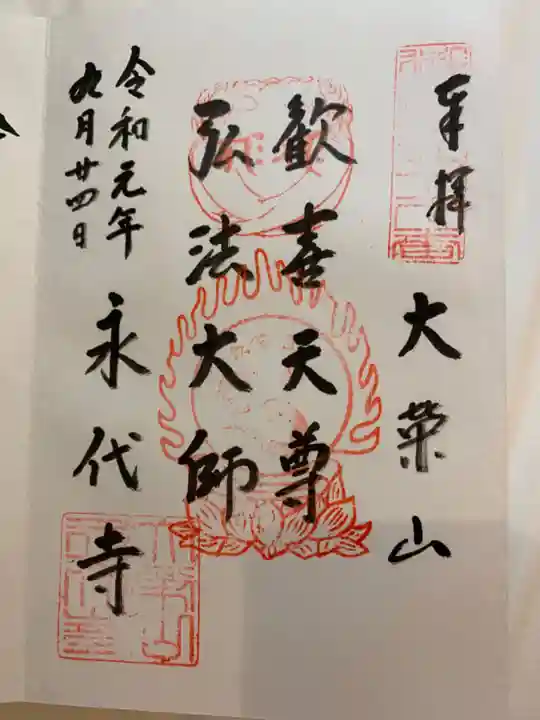 奉拝
大栄山
歓喜天尊
弘法大師
令和元年
九月廿四日
永代寺